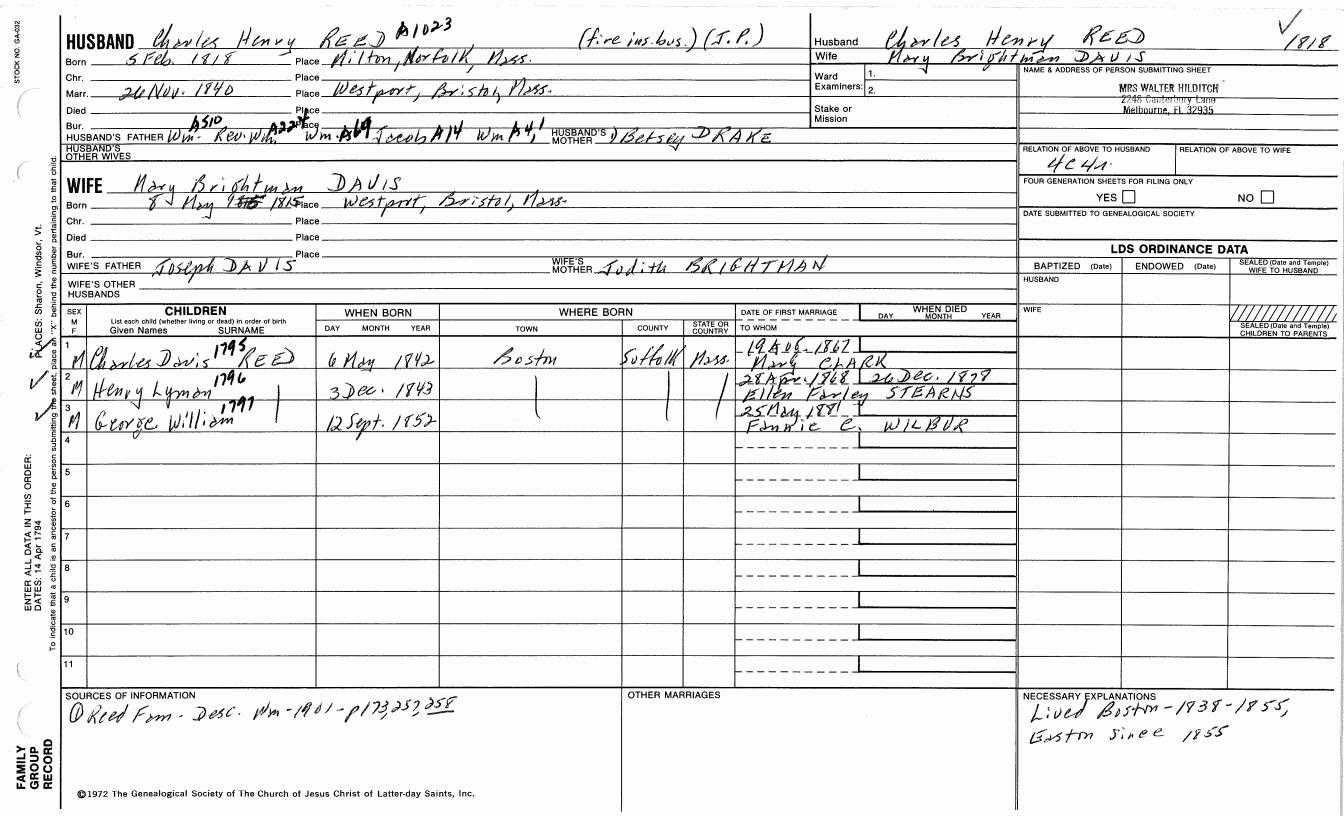 STOCK NO. GA-032
HUSBAND Charles Henry REED A1023 (fire ins. bus.) (J.P.)
Husband Charles Henry REED 1818
Wife Mary Brightman DAVIS
Born 5 Feb. 1818 Place Milton, Norfolk, Mass.
Chr. Place
Marr. 26 Nov. 1840 Place Westport, Bristol, Mass.
Died Place
Bur. Place
Ward
Examiners: 1.
2.
Stake or
Mission
NAME & ADDRESS OF PERSON SUBMITTING SHEET
MRS WALTER HILDITCH
2248 Canterbury Lane
Melbourne, FL 32935
A510 A227
HUSBAND'S FATHER Wm. Rev. Wm. Wm. A69 Jacob A14 Wm A4,1 HUSBAND'S MOTHER Betsey DRAKE
HUSBAND'S
OTHER WIVES
RELATION OF ABOVE TO HUSBAND RELATION OF ABOVE TO WIFE
4C4r.
FOUR GENERATION SHEETS FOR FILING ONLY
YES NO
DATE SUBMITTED TO GENEALOGICAL SOCIETY
WIFE Mary Brightman DAVIS
Born 8 May 1815 Place Westport, Bristol, Mass.
Chr. Place
Died Place
Bur. Place
WIFE'S FATHER Joseph DAVIS WIFE'S MOTHER Judith BRIGHTMAN
WIFE'S OTHER
HUSBANDS
LDS ORDINANCE DATA
BAPTIZED (Date) ENDOWED (Date) SEALED (Date and Temple)
WIFE TO HUSBAND
HUSBAND
WIFE
SEALED (Date and Temple)
CHILDREN TO PARENTS
SEX
M
F
CHILDREN
List each child (whether living or dead) in order of birth
Given Names SURNAME
WHEN BORN
DAY MONTH YEAR
WHERE BORN
TOWN COUNTY STATE OR COUNTRY
DATE OF FIRST MARRIAGE
TO WHOM
WHEN DIED
DAY MONTH YEAR
1 M Charles Davis 1795 REED 6 May 1842 Boston Suffolk Mass. 19 Aug. 1867
Mary CLARK
2 M Henry Lyman 1796 3 Dec. 1843 28 Apr. 1868 26 Dec. 1878
Ellen Farley STEARNS
3 M George William 1797 12 Sept. 1852 25 May 1881
Fannie C. WILBUR
4
5
6
7
8
9
10
11
SOURCES OF INFORMATION
① Reed Fam - Desc. Wm - 1901 - p173,257,258
OTHER MARRIAGES
NECESSARY EXPLANATIONS
Lived Boston - 1838-1855,
Easton since 1855
©1972 The Genealogical Society of The Church of Jesus Christ of Latter-day Saints, Inc.
FAMILY
GROUP
RECORD
ENTER ALL DATA IN THIS ORDER:
DATES: 14 Apr 1794
PLACES: Sharon, Windsor, Vt.
To indicate that a child is an ancestor of the person submitting the sheet, place an "X" behind the number pertaining to that child.